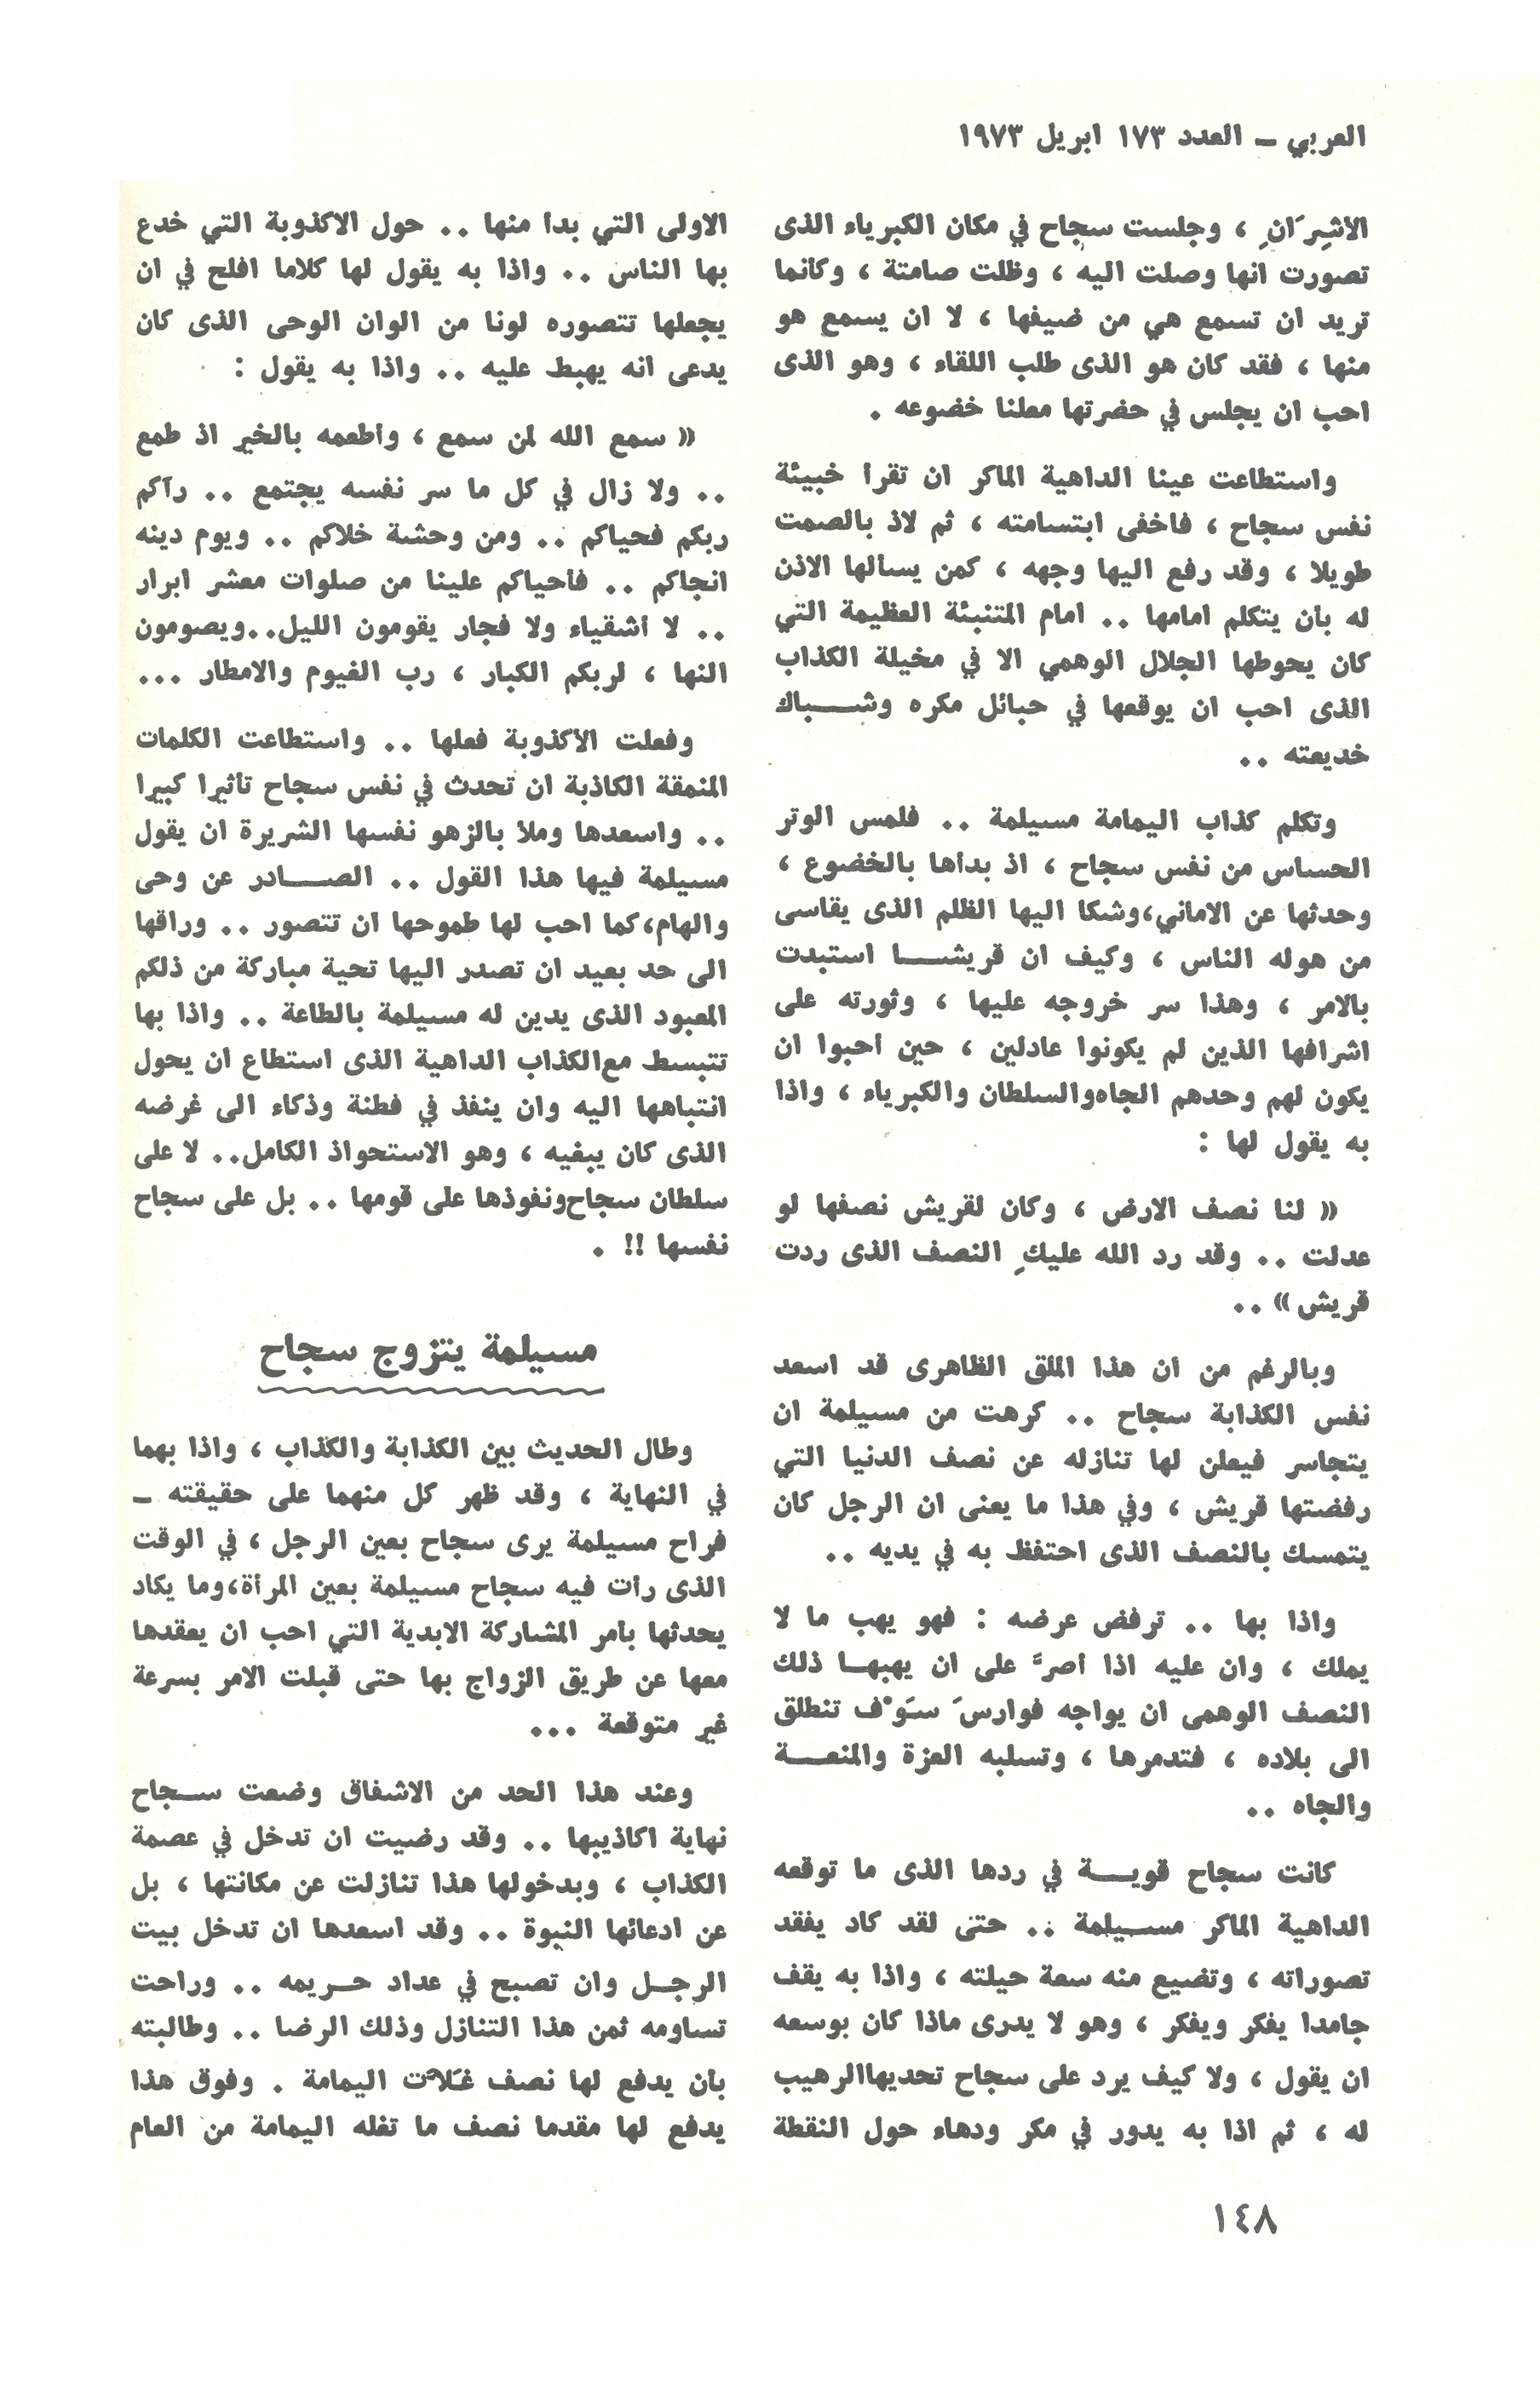 العربي – العدد ١٧٣ ابريل ١٩٧٣
الأشِرَانِ ، وجلست سجاح في مكان الكبرياء الذى
تصورت انها وصلت اليه ، وظلت صامتة ، وكأنما
تريد ان تسمع هي من ضيفها ، لا ان يسمع هو
منها ، فقد كان هو الذى طلب اللقاء ، وهو الذى
احب ان يجلس في حضرتها معلنا خضوعه .
واستطاعت عينا الداهية الماكر ان تقرأ خبيئة
نفس سجاح ، فأخفى ابتسامته ، ثم لاذ بالصمت
طويلا ، وقد رفع اليها وجهه ، كمن يسألها الاذن
له بأن يتكلم امامها .. امام المتنبئة العظيمة التي
كان يحوطها الجلال الوهمي الا في مخيلة الكذاب
الذى احب ان يوقعها في حبائل مكره وشباك
خديعته ..
وتكلم كذاب اليمامة مسيلمة .. فلمس الوتر
الحساس من نفس سجاح ، اذ بدأها بالخضوع ،
وحدثها عن الاماني،وشكا اليها الظلم الذى يقاسى
من هوله الناس ، وكيف ان قريشا استبدت
بالامر ، وهذا سر خروجه عليها ، وثورته على
اشرافها الذين لم يكونوا عادلين ، حين أحبوا ان
يكون لهم وحدهم الجاه‌والسلطان والكبرياء ، واذا
به يقول لها :
« لنا نصف الارض ، وكان لقريش نصفها لو
عدلت .. وقد رد الله عليكِ النصف الذى ردت
قريش» ..
وبالرغم من ان هذا الملق الظاهرى قد اسعد
نفس الكذابة سجاح .. كرهت من مسيلمة ان
يتجاسر فيعلن لها تنازله عن نصف الدنيا التي
رفضتها قريش ، وفي هذا ما يعنى ان الرجل كان
يتمسك بالنصف الذى احتفظ به في يديه ..
واذا بها .. ترفض عرضه : فهو يهب ما لا
يملك ، وان عليه اذا أصرَّ على ان يهبها ذلك
النصف الوهمى ان يواجه فوارسَ سَوْف تنطلق
الى بلاده ، فتدمرها ، وتسلبه العزة والمنعة
والجاه ..
كانت سجاح قوية في ردها الذى ما توقعه
الداهية الماكر مسيلمة .. حتى لقد كاد يفقد
تصوراته ، وتضيع منه سعة حيلته ، واذا به يقف
جامدا يفكر ويفكر ، وهو لا يدرى ماذا كان بوسعه
ان يقول ، ولا كيف يرد على سجاح تحديها‌الرهيب
له ، ثم اذا به يدور في مكر ودهاء حول النقطة
الاولى التي بدأ منها .. حول الاكذوبة التي خدع
بها الناس .. واذا به يقول لها كلاما افلح في ان
يجعلها تتصوره لونا من الوان الوحى الذى كان
يدعى انه يهبط عليه .. واذا به يقول :
« سمع الله لمن سمع ، وأطعمه بالخير اذ طمع
.. ولا زال في كل ما سر نفسه يجتمع .. رآكم
ربكم فحياكم .. ومن وحشة خلاكم .. ويوم دينه
انجاكم .. فأحياكم علينا من صلوات معشر ابرار
.. لا أشقياء ولا فجار يقومون الليل..ويصومون
النها ، لربكم الكبار ، رب الغيوم والامطار ...
وفعلت الأكذوبة فعلها .. واستطاعت الكلمات
المنمقة الكاذبة ان تحدث في نفس سجاح تأثيرا كبيرا
.. واسعدها وملأ بالزهو نفسها الشريرة ان يقول
مسيلمة فيها هذا القول .. الصادر عن وحى
والهام،كما احب لها طموحها ان تتصور .. وراقها
الى حد بعيد ان تصدر اليها تحية مباركة من ذلكم
المعبود الذى يدين له مسيلمة بالطاعة .. واذا بها
تتبسط مع‌الكذاب الداهية الذى استطاع ان يحول
انتباهها اليه وان ينفذ في فطنة وذكاء الى غرضه
الذى كان يبغيه ، وهو الاستحواذ الكامل.. لا على
سلطان سجاح‌ونفوذها على قومها .. بل على سجاح
نفسها !! .
مسيلمة يتزوج سجاح
وطال الحديث بين الكذابة والكذاب ، واذا بهما
في النهاية ، وقد ظهر كل منهما على حقيقته –
فراح مسيلمة يرى سجاح بعين الرجل ، في الوقت
الذى رأت فيه سجاح مسيلمة بعين المرأة،وما يكاد
يحدثها بأمر المشاركة الابدية التي احب ان يعقدها
معها عن طريق الزواج بها حتى قبلت الامر بسرعة
غير متوقعة ...
وعند هذا الحد من الاشفاق وضعت سجاح
نهاية اكاذيبها .. وقد رضيت ان تدخل في عصمة
الكذاب ، وبدخولها هذا تنازلت عن مكانتها ، بل
عن ادعائها النبوة .. وقد اسعدها ان تدخل بيت
الرجل وان تصبح في عداد حريمه .. وراحت
تساومه ثمن هذا التنازل وذلك الرضا .. وطالبته
بأن يدفع لها نصف غَلاَّت اليمامة . وفوق هذا
يدفع لها مقدما نصف ما تغله اليمامة من العام
١٤٨